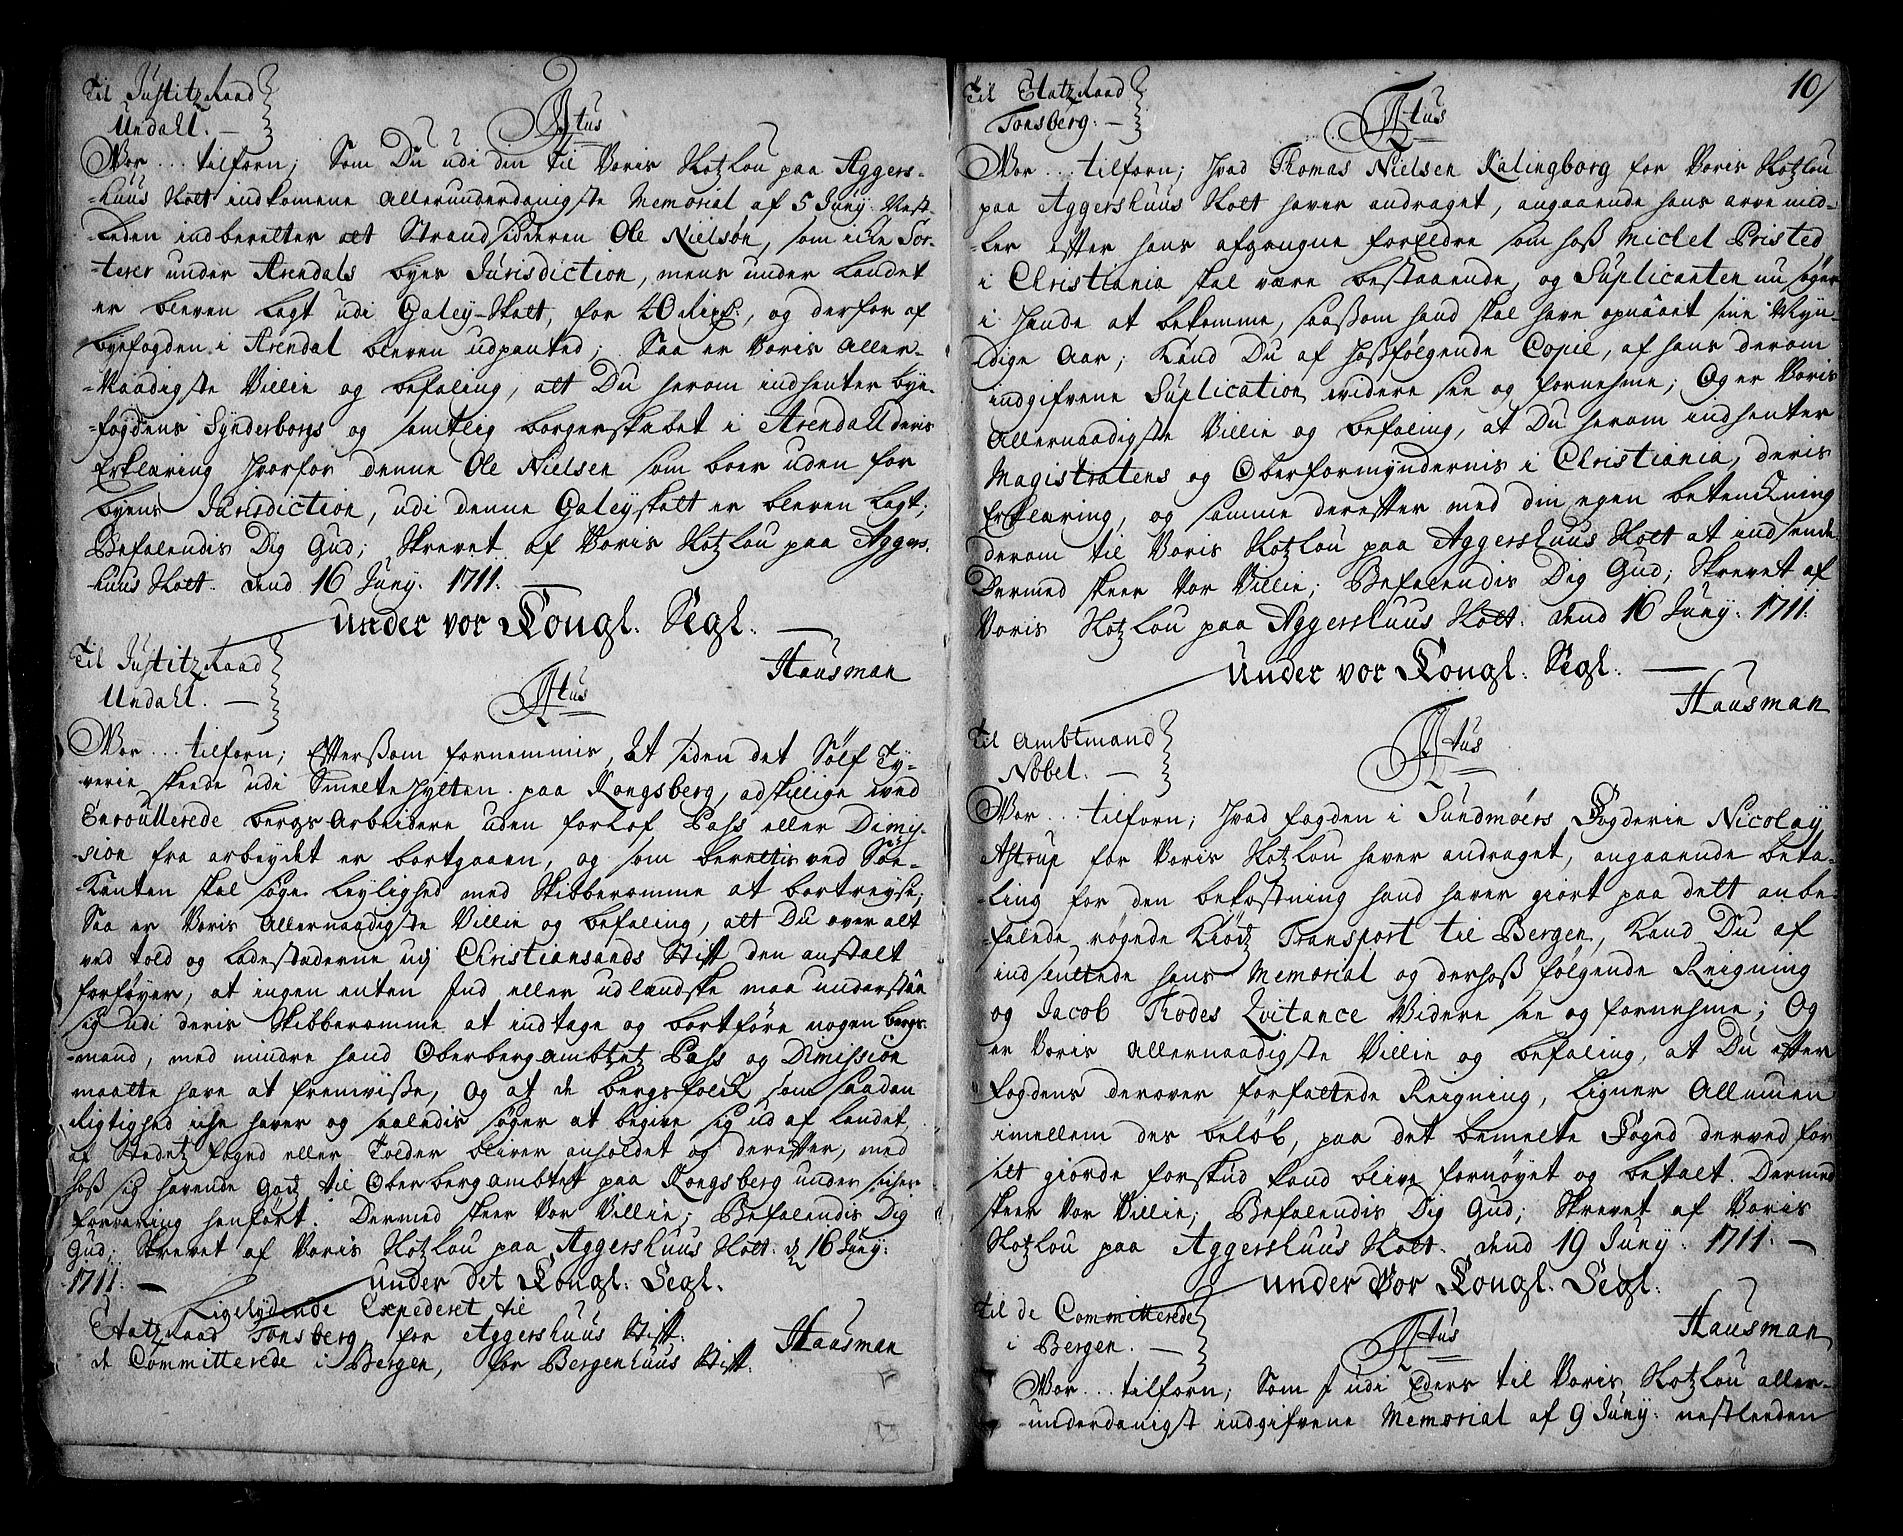 Til Justitz Raad
Undall. —
Ftus
Vor... tilforn; Som Du udi din til Voris Slotzlou paa Aggers-
-huus Slott indkomene allerunderdanigste Memorial af 5 Juny. Nest-
-leden indberetter att Strandsideren Ole Nielsøn, som icke Sor-
-terer under Arendals byes Jurisdiction, mens under Landet
er bleven lagt udi Galey-Skatt, for 40 rixd:, og derfor af
byefogden i Arendal bleven udpanted; Saa er Voris Aller-
-Naadigste Villie og befaling, att Du herom indhenter bye-
-fogdens Synderborgs og samtlig borgerskabet i Arendall deris
Erklæring hvorfor denne Ole Nielsen som boer uden for
byens Jurisdiction, udi denne Galeyskatt er bleven lagt;
Befalendis Dig Gud; Skrevet af Voris Slotzlou paa Aggers-
-huus Slott. dend 16 Juny. 1711. —
under vor Kongl. Segl. —
Hausman
Til Justitz Raad
Undall. —
Ftus
Vor... tilforn; Eftersom fornemmis, at siden det Sølf Ty-
-verie skeede udi Smeltehytten paa Kongsberg, adskillige ved
Enroullerede bergs Arbeidere uden forlof Pass eller Dimis-
-sion fra arbeydet er bortgaaen, og som berettis ved Søe-
-Kanten skal søge leylighed med Skibberomme at bortreyse,
Saa er Voris Allernaadigste Villie og befaling, att Du over alt
ved told og ladestaderne udj Christiansands Stift den anstalt
forføyer, at ingen enten Ind eller udlandske maa understaa
sig udi deris Skibberomme at indtage og bortføre nogen bergs-
-mand, med mindre hand Oberbergambtetz Pass og Dimission
maatte have at fremvisse, og at de bergsfolck som saadan
rigtighed icke haver og saaledis søger at begive sig ud af landet,
af Stedetz foged eller Tolder bliver anholdet og derefter, med
hoss sig havende Godz til Oberbergambtet paa Kongsberg under sicker
forvaring henført. Dermed skeer vor Villie; Befalendis Dig
Gud; Skrevet af Voris Slotzlou paa Aggershuus Slott. d. 16 Juny:
1711. —
under det Kongl. Segl.
Ligelydende Expederet til
Etatz raad Tonsberg, for Aggershuus Stift.
de Committerede i Bergen, for Bergenhuus Stift.
Hausman
10/
Til Etatz Raad
Tonsberg. —
Ftus
Vor... tilforn; Hvad Thomas Nielsen Kalingborg for Voris Slotzlou
paa Aggershuus Slott haver andraget, angaaende hans arve mid-
-ler efter hans afgangne forældre som hoss Michel Pristed
i Christiania skal være bestaaende, og Suplicanten nu søger
i hænde at bekomme, saassom hand skal have opnaaet sine Myn-
dige Aar; Kand Du af hossfølgende Copie, af hans derom
indgifvene Suplication videre see og fornehme; Og er Voris
Allernaadigste Villie og befaling, at Du herom indhenter
Magistratens og Oberformyndernis i Christiania, deris
Erklæring, og samme derefter med din egen betenckning
derom til Voris Slotzlou paa Aggershuus Slott at indsende,
Dermed skeer Vor Villie; Befalendis Dig Gud; Skrevet af
Voris Slotzlou paa Aggershuus Slott. dend 16 Juny: 1711.
under vor Kongl. Segl. —
Hausman
Til Ambtmand
Nobel. —
Ftus
Vor... tilforn; Hvad fogden i Sundmøers Fogderie Nicolay
Astrup for Voris Slotzlou haver andraget, angaaende beta-
-ling for den bekostning hand haver giort paa dett anbe-
-falede røgede Kiødz Transport til Bergen, Kand Du af
indsluttede hans Memorial og derhoss følgende Reigning
og Jacob Thodes Qvitance Videre see og fornehme; Og
er Voris Allernaadigste Villie og befaling, at Du efter
fogdens derover forfattede Reigning, Ligner Allmuen
imellem des beløb, paa det bemelte Foged derved for
sitt giorde forskud kand blive fornøyet og betalt. Dermed
skeer Vor Villie; Befalendis Dig Gud; Skrevet af Voris
Slotzlou paa Aggershuus Slott. dend 19 Juny. 1711. —
under Vor Kongl. Segl.
Hausman
Til de Committerede
i Bergen. —
Ftus
Vor... tilforn; Som I udi Eders til Voris Slotzlou aller-
-underdanigst indgifvene Memorial af 9 Juny: nestleeden